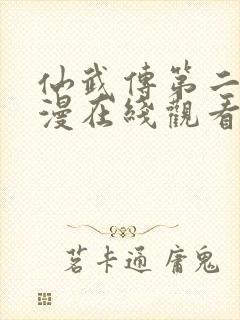 仙武傳第二
漫在綫觀看
茗卡通 庸鬼